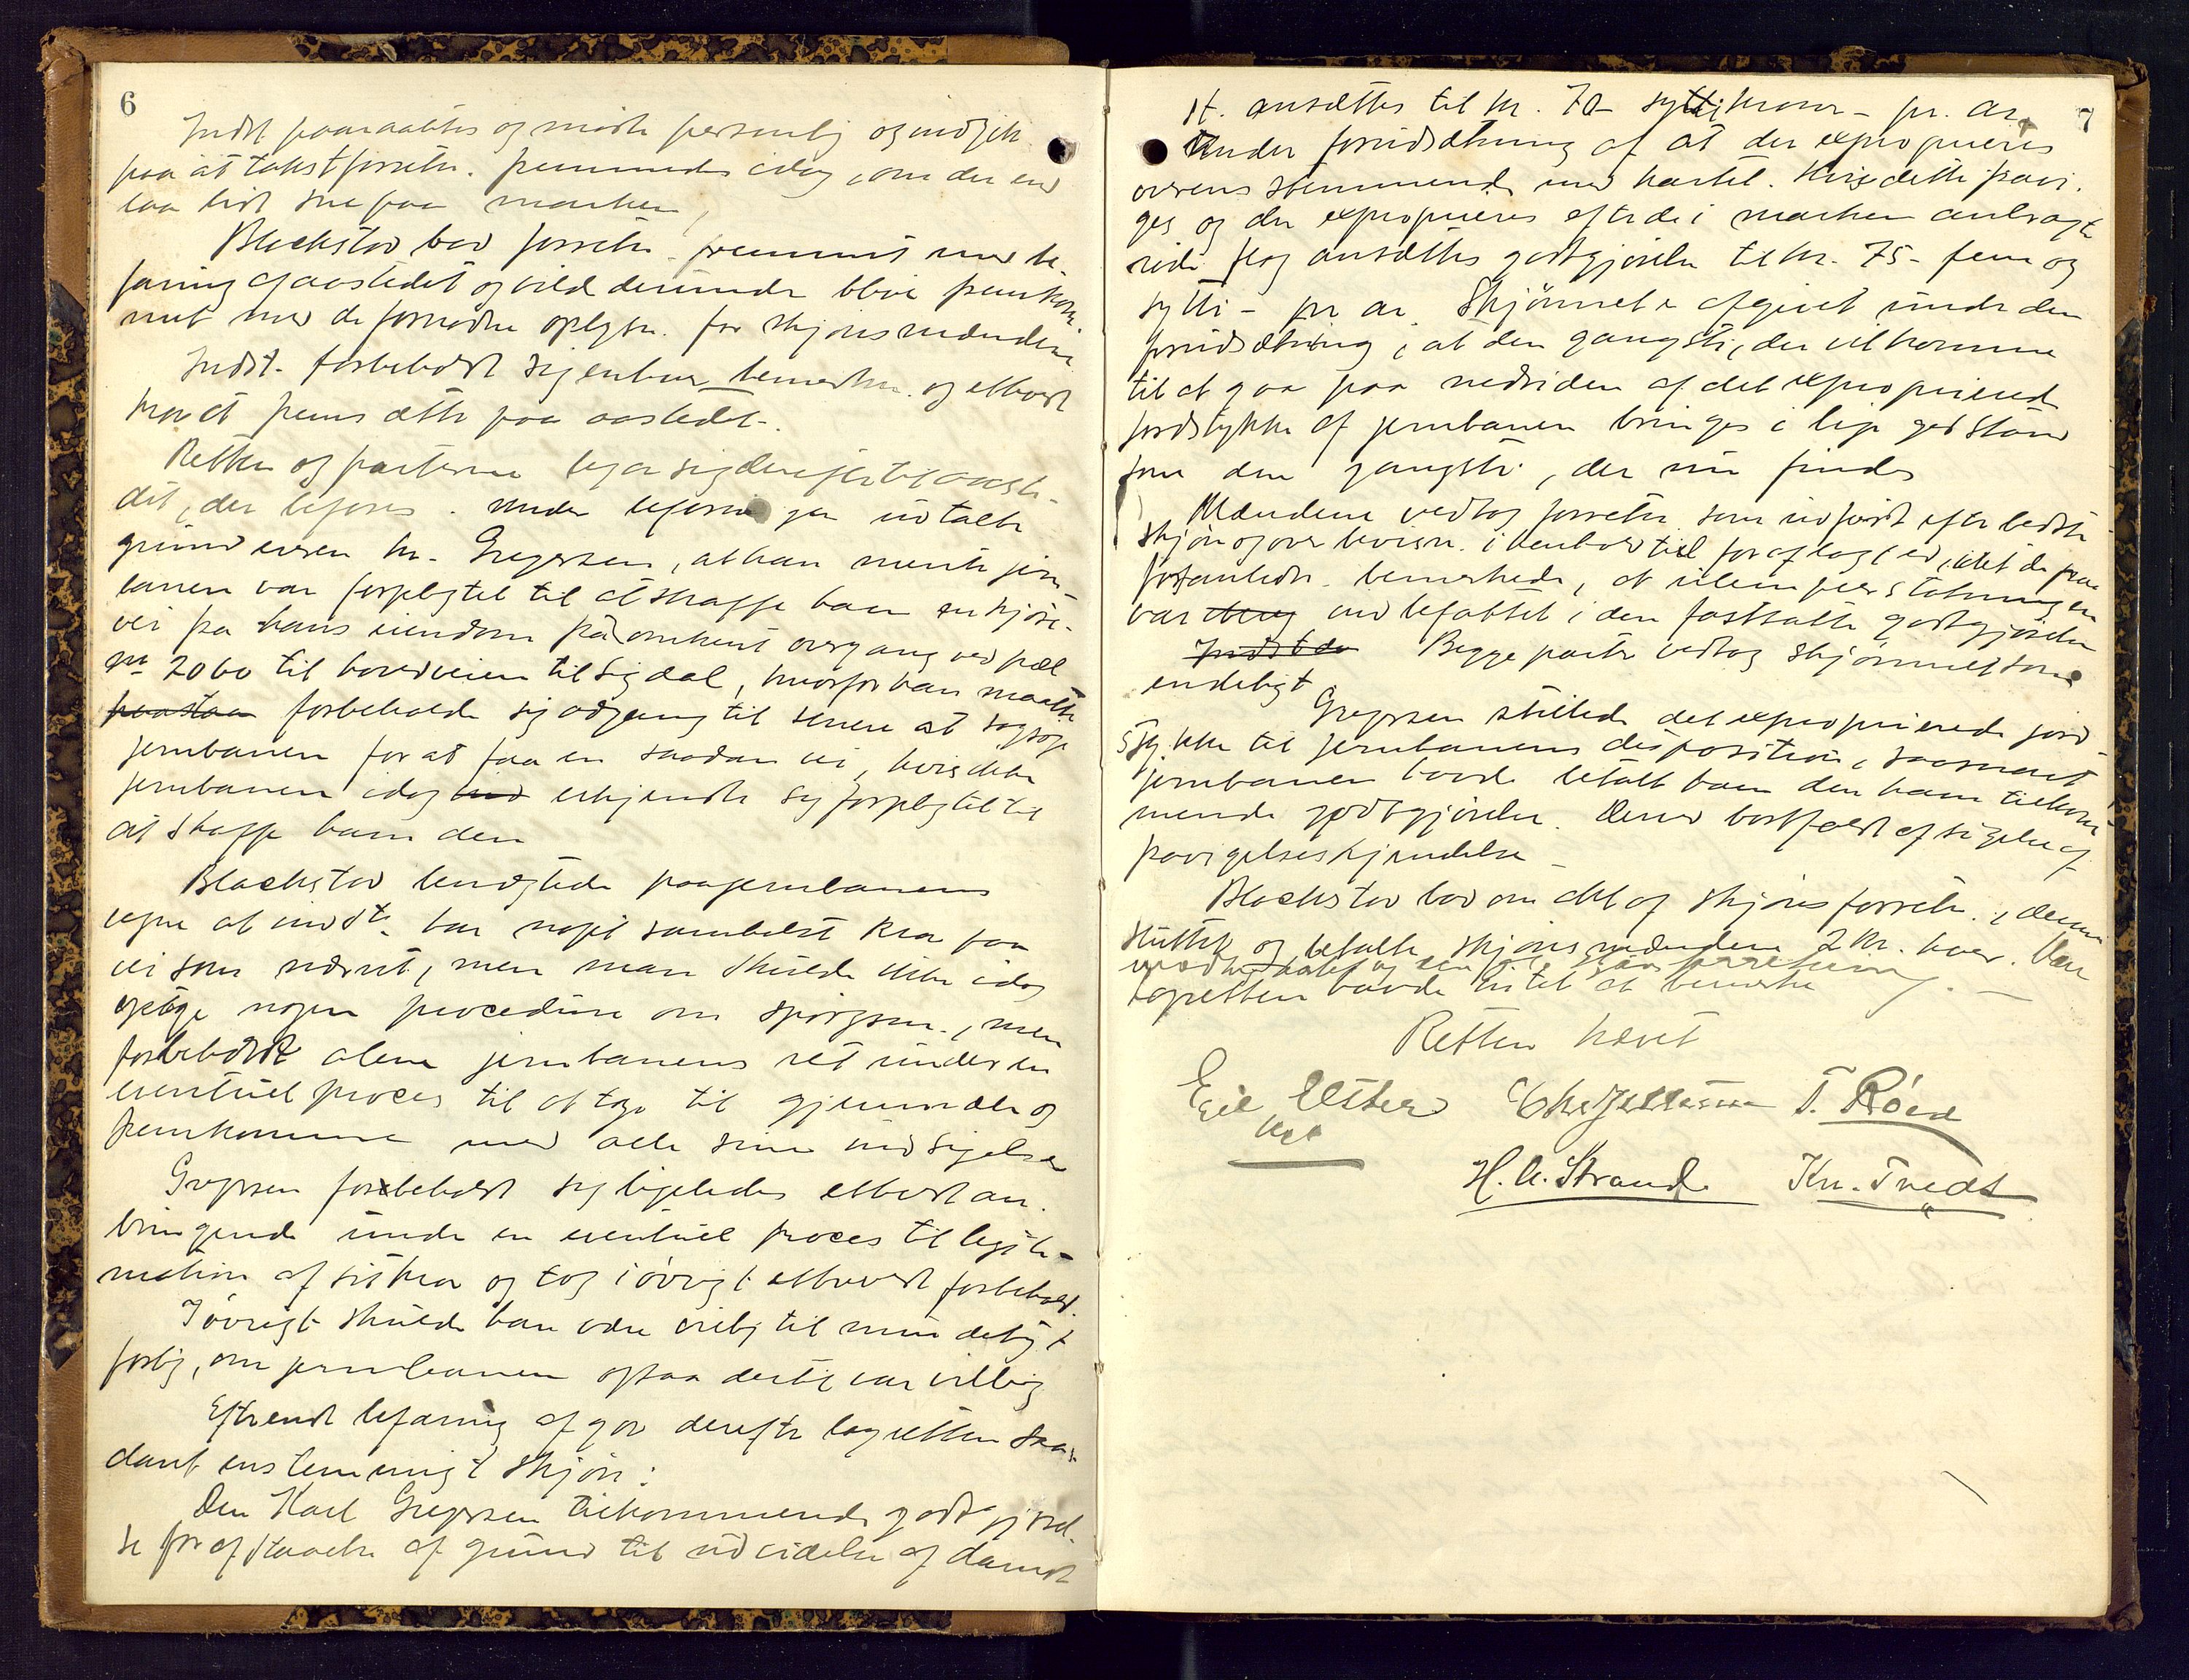 6
Indst. paaraabtes og mødte personlig og indgik
paa at takstforretn. fremmedes idag, om der end
laa lidt sne paa marken,
Blackstad bad forretn. fremmet med be-
faring af aastedet og vilde derunder blive fremkom-
met med de fornødne oplysn. for skjønsmændene
Indst. forbeholdt sig enhver bemerkn. og ethvert
krav at fremsætte paa aastedet.
Retten og parterne begav sig derefter til aaste-
det, der befares. Under befaringen udtalte
grundeieren hr. Gregersen, at han mente jern-
banen var forpligtet til at skaffe ham en kjøre-
vei fra hans eiendom på omkent overgang ved pæl
nr 2060 til hovedveien til Sigdal, hvorfor han maatte
paastaa forbeholde sig adgang til senere at sagsøge
jernbanen for at faa en saadan vei, hvis ikke
jernbanen idag erkjendte sig forpligtet til
at skaffe ham den
Blackstad benægtede paa jernbanens
vegne at indst. har noget somhelst krav paa
vei som nævnt, men man skulde ikke idag
optage nogen procedure om spørgsm., men
forbeholdt alene jernbanens ret under en
eventuel proces til at tage til gjenmæle og
fremkomme med alle sine indsigelser
Gregersen forbeholdt sig ligeledes ethvert an-
bringende under en eventuel proces til legiti-
mation af sit krav og tog iøvrigt ethvert forbehold.
Iøvrigt skulde han være villig til mindeligt
forlig, om jernbanen ogsaa dertil var villig
Efter endt befaring afgav derefter lagretten saa-
dant enstemmigt skjøn:
Den Karl Gregersen tilkommende godtgjørel-
se for afstaaelse af grund til udvidelse af Aamot
7
st. ansættes til kr. 70 - sytti kroner - pr. ar,
Under forudsætning af at der exproprieres
overensstemmende med kartet. Hvis dette fravi-
ges og der exproprieres efter de i marken anbragte
røde flag ansættes godtgjørelsen til kr. 75 - fem og
sytti - pr ar. Skjønnet er afgivet under den
forudsætning, at den gangsti, der vil komme
til at gaa paa nedsiden af det exproprierede
jordstykke af jernbanen bringes i lige god stand
som den gangsti, der nu findes
Mændene vedtog forretn. som udført efter bedste
skjøn og overbevisn. i henhold til før aflagt ed, idet de paa
foranledn. bemerkede, at ulempeerstatningen
var indbefattet i den fastsatte godtgjørelse
Begge parter vedtog skjønnet som
endeligt
Gregersen stillede det exproprierede jord-
stykke til jernbanens disposition, saasnart
jernbanen havde betalt ham den ham tilkom-
mende godtgjørelse. Derved bortfaldt afsigelse af
fravigelseskjendelse
Blackstad bad om akt af skjønsforretn., denne
sluttet og betalte skjønsmændene 2 kr. hver. Den
lagretten havde intet at bemerke
Retten hævet
T. Røed
H. A. Strand Kn. Tvedt